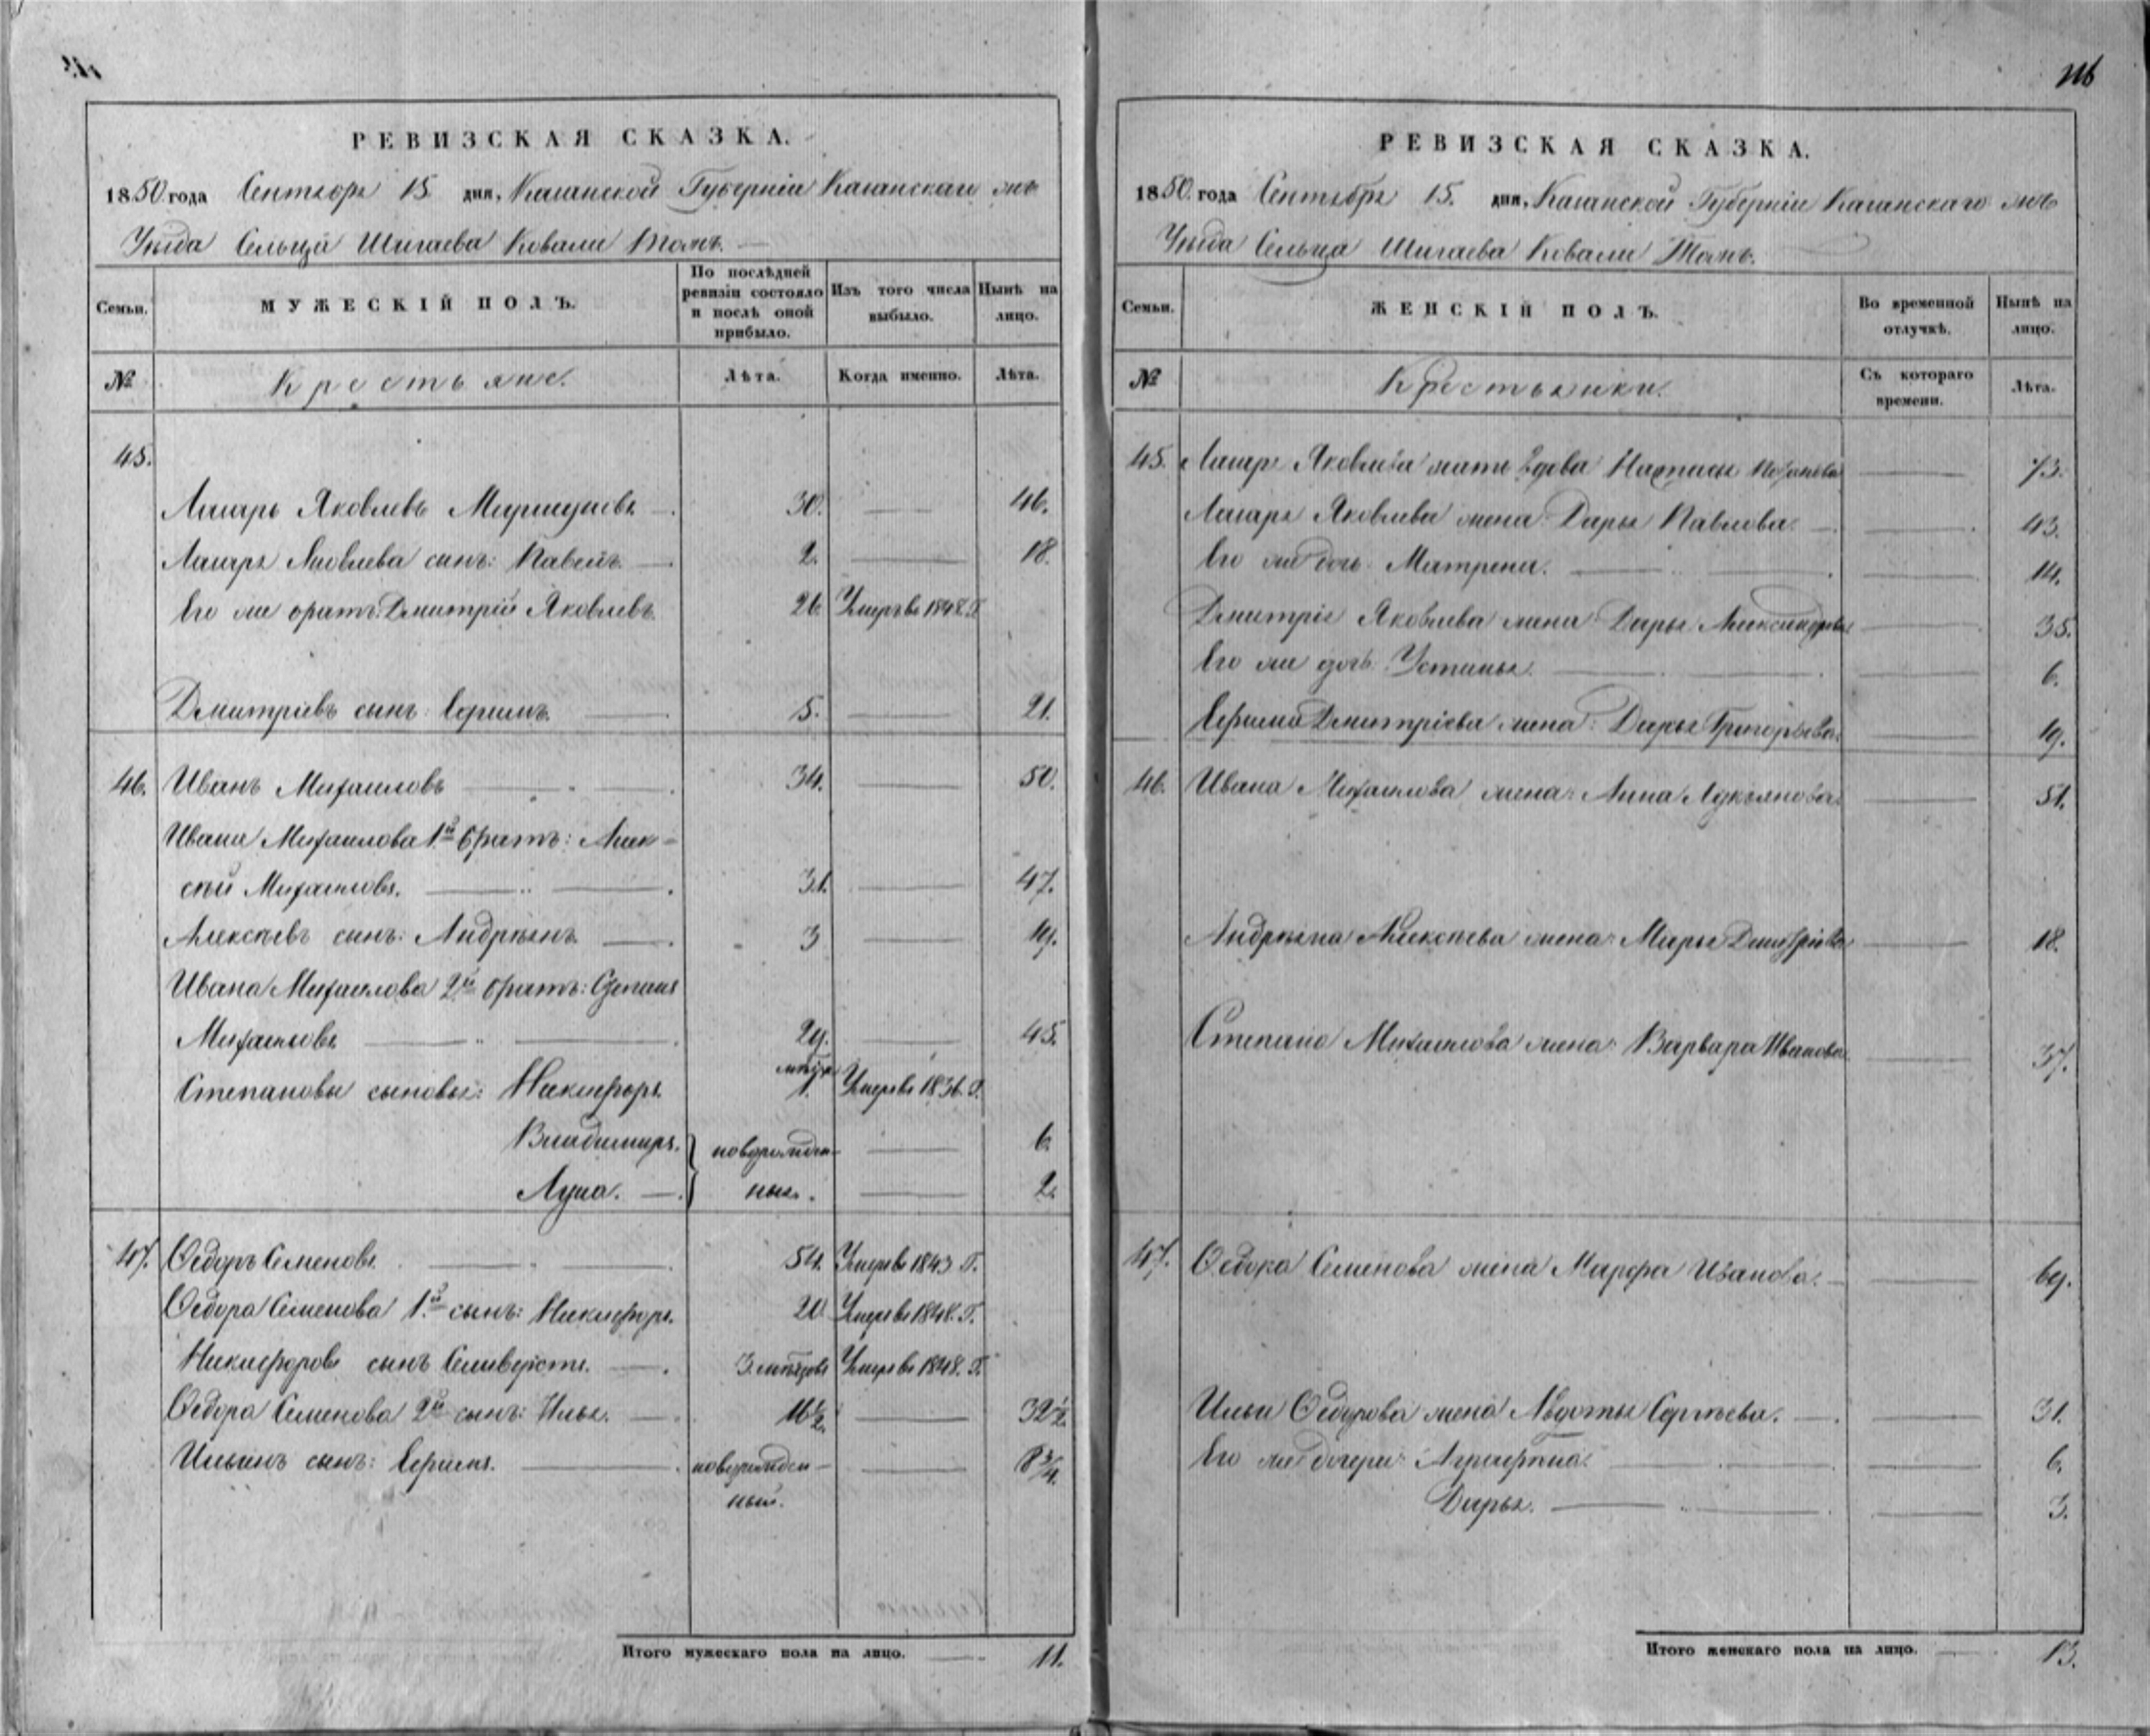 116
РЕВИЗСКАЯ СКАЗКА.
1850 года Сентября 15 дня, Казанской Губерніи Казанскаго
Уѣзда Сельца Шигаева Ковали тожъ.
Семьи.
МУЖЕСКІЙ ПОЛЪ.
По послѣдней ревизіи состояло и послѣ оной прибыло.
Изъ того числа выбыло.
Нынѣ на лицо.
№
Крестьяне.
Лѣта.
Когда именно.
Лѣта.
45.
Лазарь Яковлевъ 30. 46.
Лазаря Яковлева сынъ: Павелъ 2. 18.
Его же братъ: Дмитрій Яковлевъ 26. Умеръ въ 1848. Г.
Дмитріевъ сынъ: Ефимъ. 5. 21.
46. Иванъ Михайловъ 34. 50.
Ивана Михайлова 1й братъ: Алек-
сѣй Михайловъ. 31. 47.
Алексѣевъ сынъ: Андреянъ 3 19.
Ивана Михайлова 2й братъ: Степанъ
Михайловъ 29. 45.
Степановы сыновья: Никифоръ. мѣсяц. 1. Умеръ въ 1836. Г.
Владимиръ. новорожден- 6.
Лука. ные. 2.
47. Ѳедоръ Семеновъ. 54. Умеръ въ 1843 Г.
Ѳедора Семенова 1.й сынъ: Никифоръ. 20. Умеръ въ 1848. Г.
Никифоровъ сынъ Селиверстъ. 3. мѣсяцовъ Умеръ въ 1848. Г.
Ѳедора Семенова 2й сынъ: Илья. 16 1/2. 32 1/2.
Ильинъ сынъ: Ефимъ. новорожден- 8 3/4.
ный.
Итого мужескаго пола на лицо. 11.
РЕВИЗСКАЯ СКАЗКА.
1850 года Сентября 15. дня, Казанской Губерніи Казанскаго
Уѣзда Сельца Шигаева Ковали тожъ.
Семьи.
ЖЕНСКІЙ ПОЛЪ.
Во временной отлучкѣ.
Нынѣ на лицо.
№
Крестьянки.
Съ котораго времени.
Лѣта.
45. Лазаря Яковлева мать вдова Настасья 73.
Лазаря Яковлева жена: Дарья Павлова. 43.
Его же дочь: Матрена. 14.
Дмитрія Яковлева жена: Дарья Александрова 35.
Его же дочь: Устинья. 6.
Ефима Дмитріева жена: Дарья Григорьева. 19.
46. Ивана Михайлова жена: Анна Лукьянова. 51.
Андреяна Алексѣева жена: Марья Дмитріева 18.
Степана Михайлова жена: Варвара Иванова 37.
47. Ѳедора Семенова жена Марфа Иванова. 69.
Ильи Ѳедорова жена Авдотья Сергѣева. 31.
Его же дочери: Агрифѣна. 6.
Дарья. 3.
Итого женскаго пола на лицо. 13.